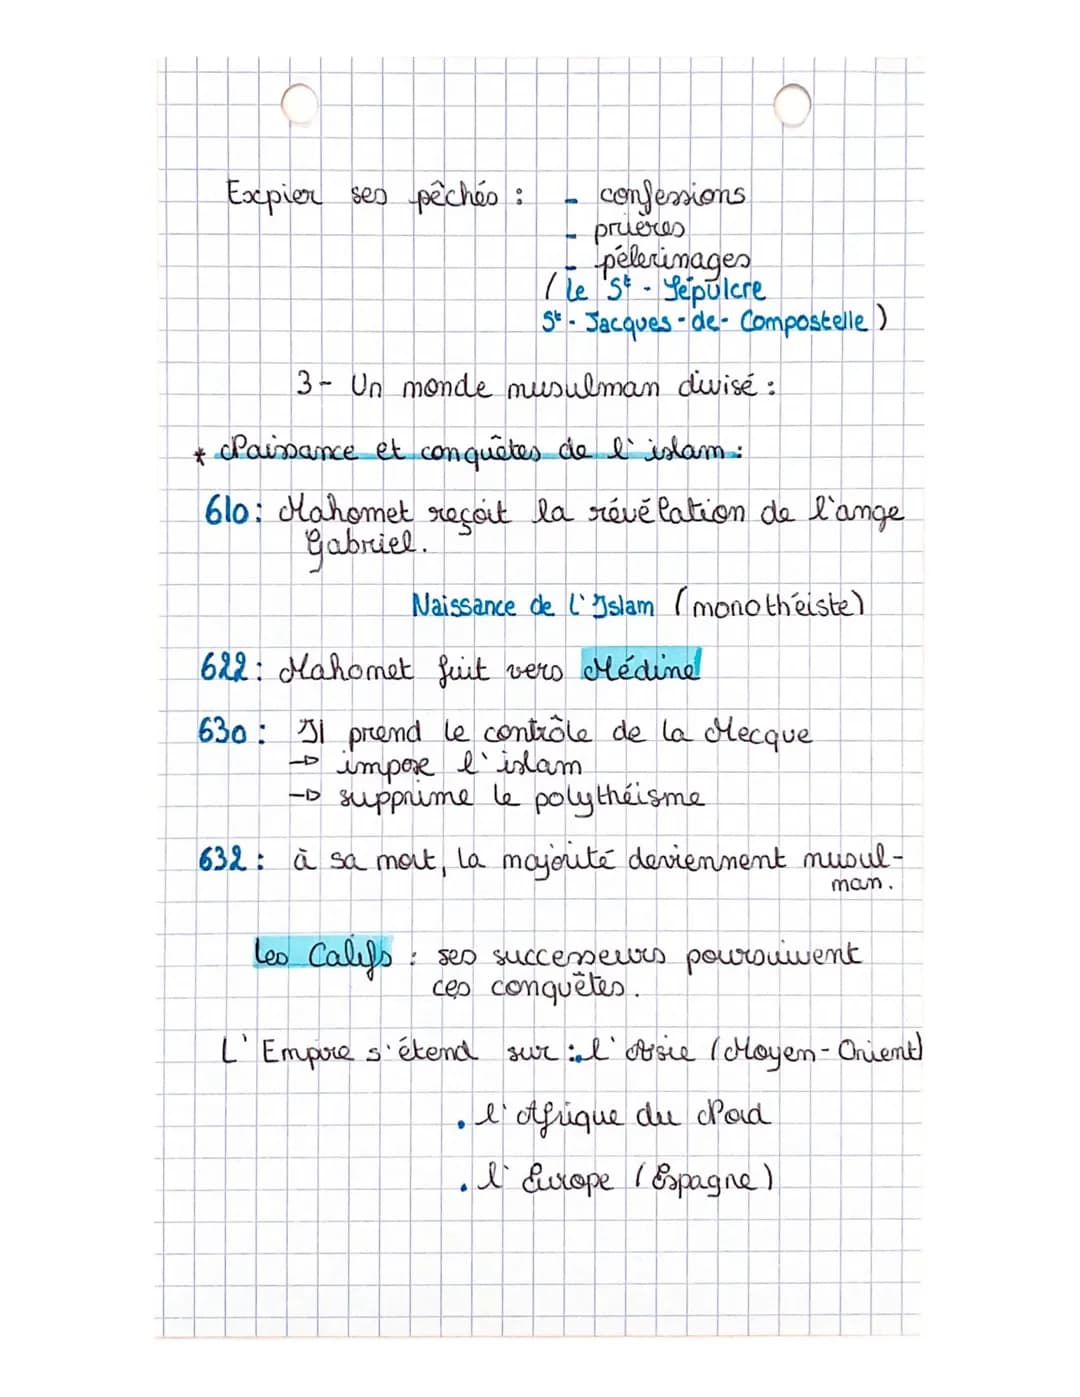 Expier ses pêchés : - confessions
- prières
- pélerinages
( Le St - Sépulcre
St - Jacques - de - Compostelle )
3 - Un monde musulman divisé :
* Naissance et conquêtes de l'islam :
610 : Mahomet reçoit la révélation de l'ange
Gabriel.
Naissance de l'Islam (monothéiste)
622 : Mahomet fuit vers Médine
630 : Il prend le contrôle de la Mecque
→ impose l'islam
→ supprime le polythéisme
632 : à sa mort, la majorité deviennent musul-
man.
Les Califs : ses successeurs poursuivent
ces conquêtes.
L'Empire s'étend sur : . l'Asie (Moyen - Orient)
. l'Afrique du Nord
. l'Europe (Espagne)